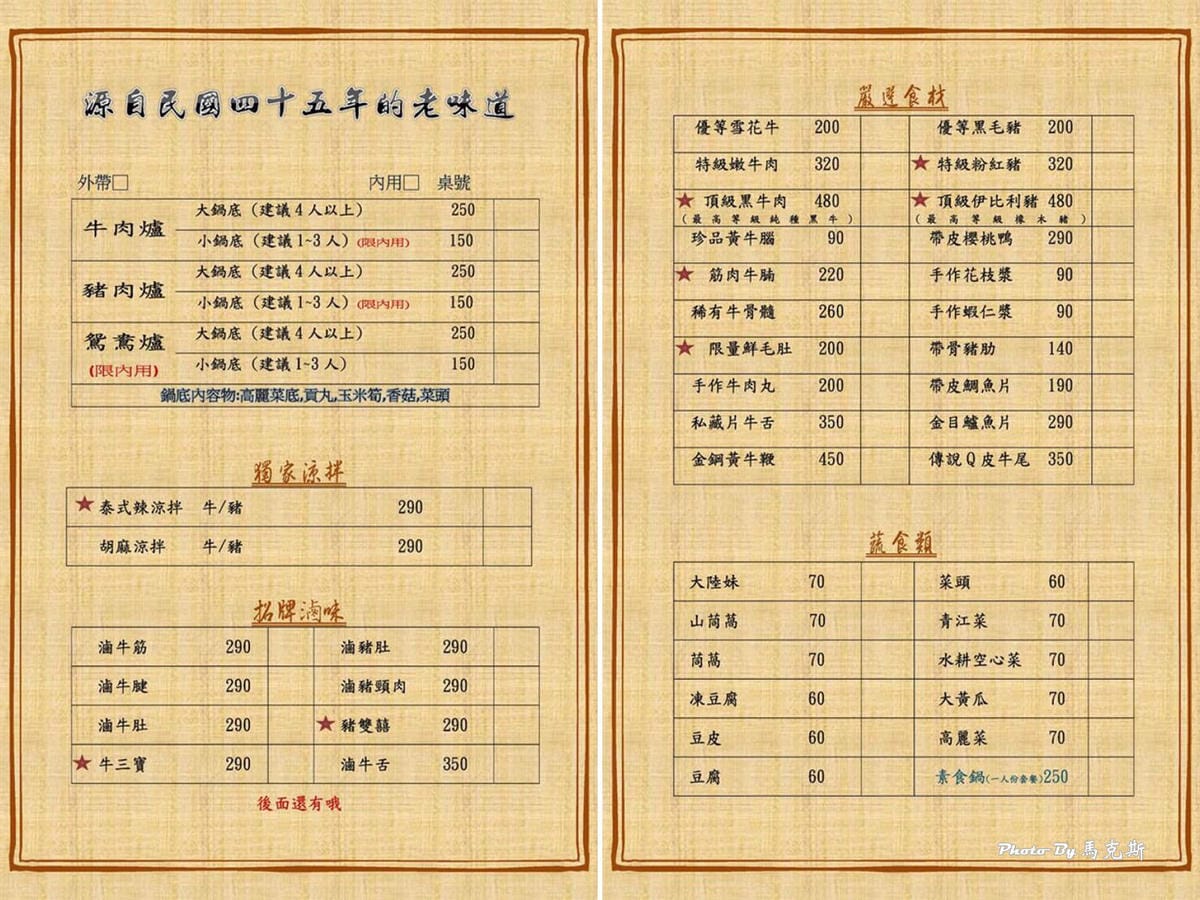 源自民國四十五年的老味道
外帶□ 內用□ 桌號
牛肉爐 大鍋底（建議4人以上） 250
小鍋底（建議1~3人）(限內用) 150
豬肉爐 大鍋底（建議4人以上） 250
小鍋底（建議1~3人）(限內用) 150
鴛鴦爐 大鍋底（建議4人以上） 250
(限內用) 小鍋底（建議1~3人） 150
鍋底內容物:高麗菜底,貢丸,玉米筍,香菇,菜頭
獨家涼拌
★泰式辣涼拌 牛/豬 290
胡麻涼拌 牛/豬 290
招牌滷味
滷牛筋 290 滷豬肚 290
滷牛腱 290 滷豬頸肉 290
滷牛肚 290 ★豬雙囍 290
★牛三寶 290 滷牛舌 350
後面還有哦
嚴選食材
優等雪花牛 200 優等黑毛豬 200
特級嫩牛肉 320 ★特級粉紅豬 320
★頂級黑牛肉 480 ★頂級伊比利豬 480
(最高等級純種黑牛) (最高等級橡木豬)
珍品黃牛腦 90 帶皮櫻桃鴨 290
★筋肉牛腩 220 手作花枝漿 90
稀有牛骨髓 260 手作蝦仁漿 90
★限量鮮毛肚 200 帶骨豬肋 140
手作牛肉丸 200 帶皮鯛魚片 190
私藏片牛舌 350 金目鱸魚片 290
金鋼黃牛鞭 450 傳說Q皮牛尾 350
蔬食類
大陸妹 70 菜頭 60
山茼蒿 70 青江菜 70
茼蒿 70 水耕空心菜 70
凍豆腐 60 大黃瓜 70
豆皮 60 高麗菜 70
豆腐 60 素食鍋(一人份套餐)250
Photo By 馬克斯